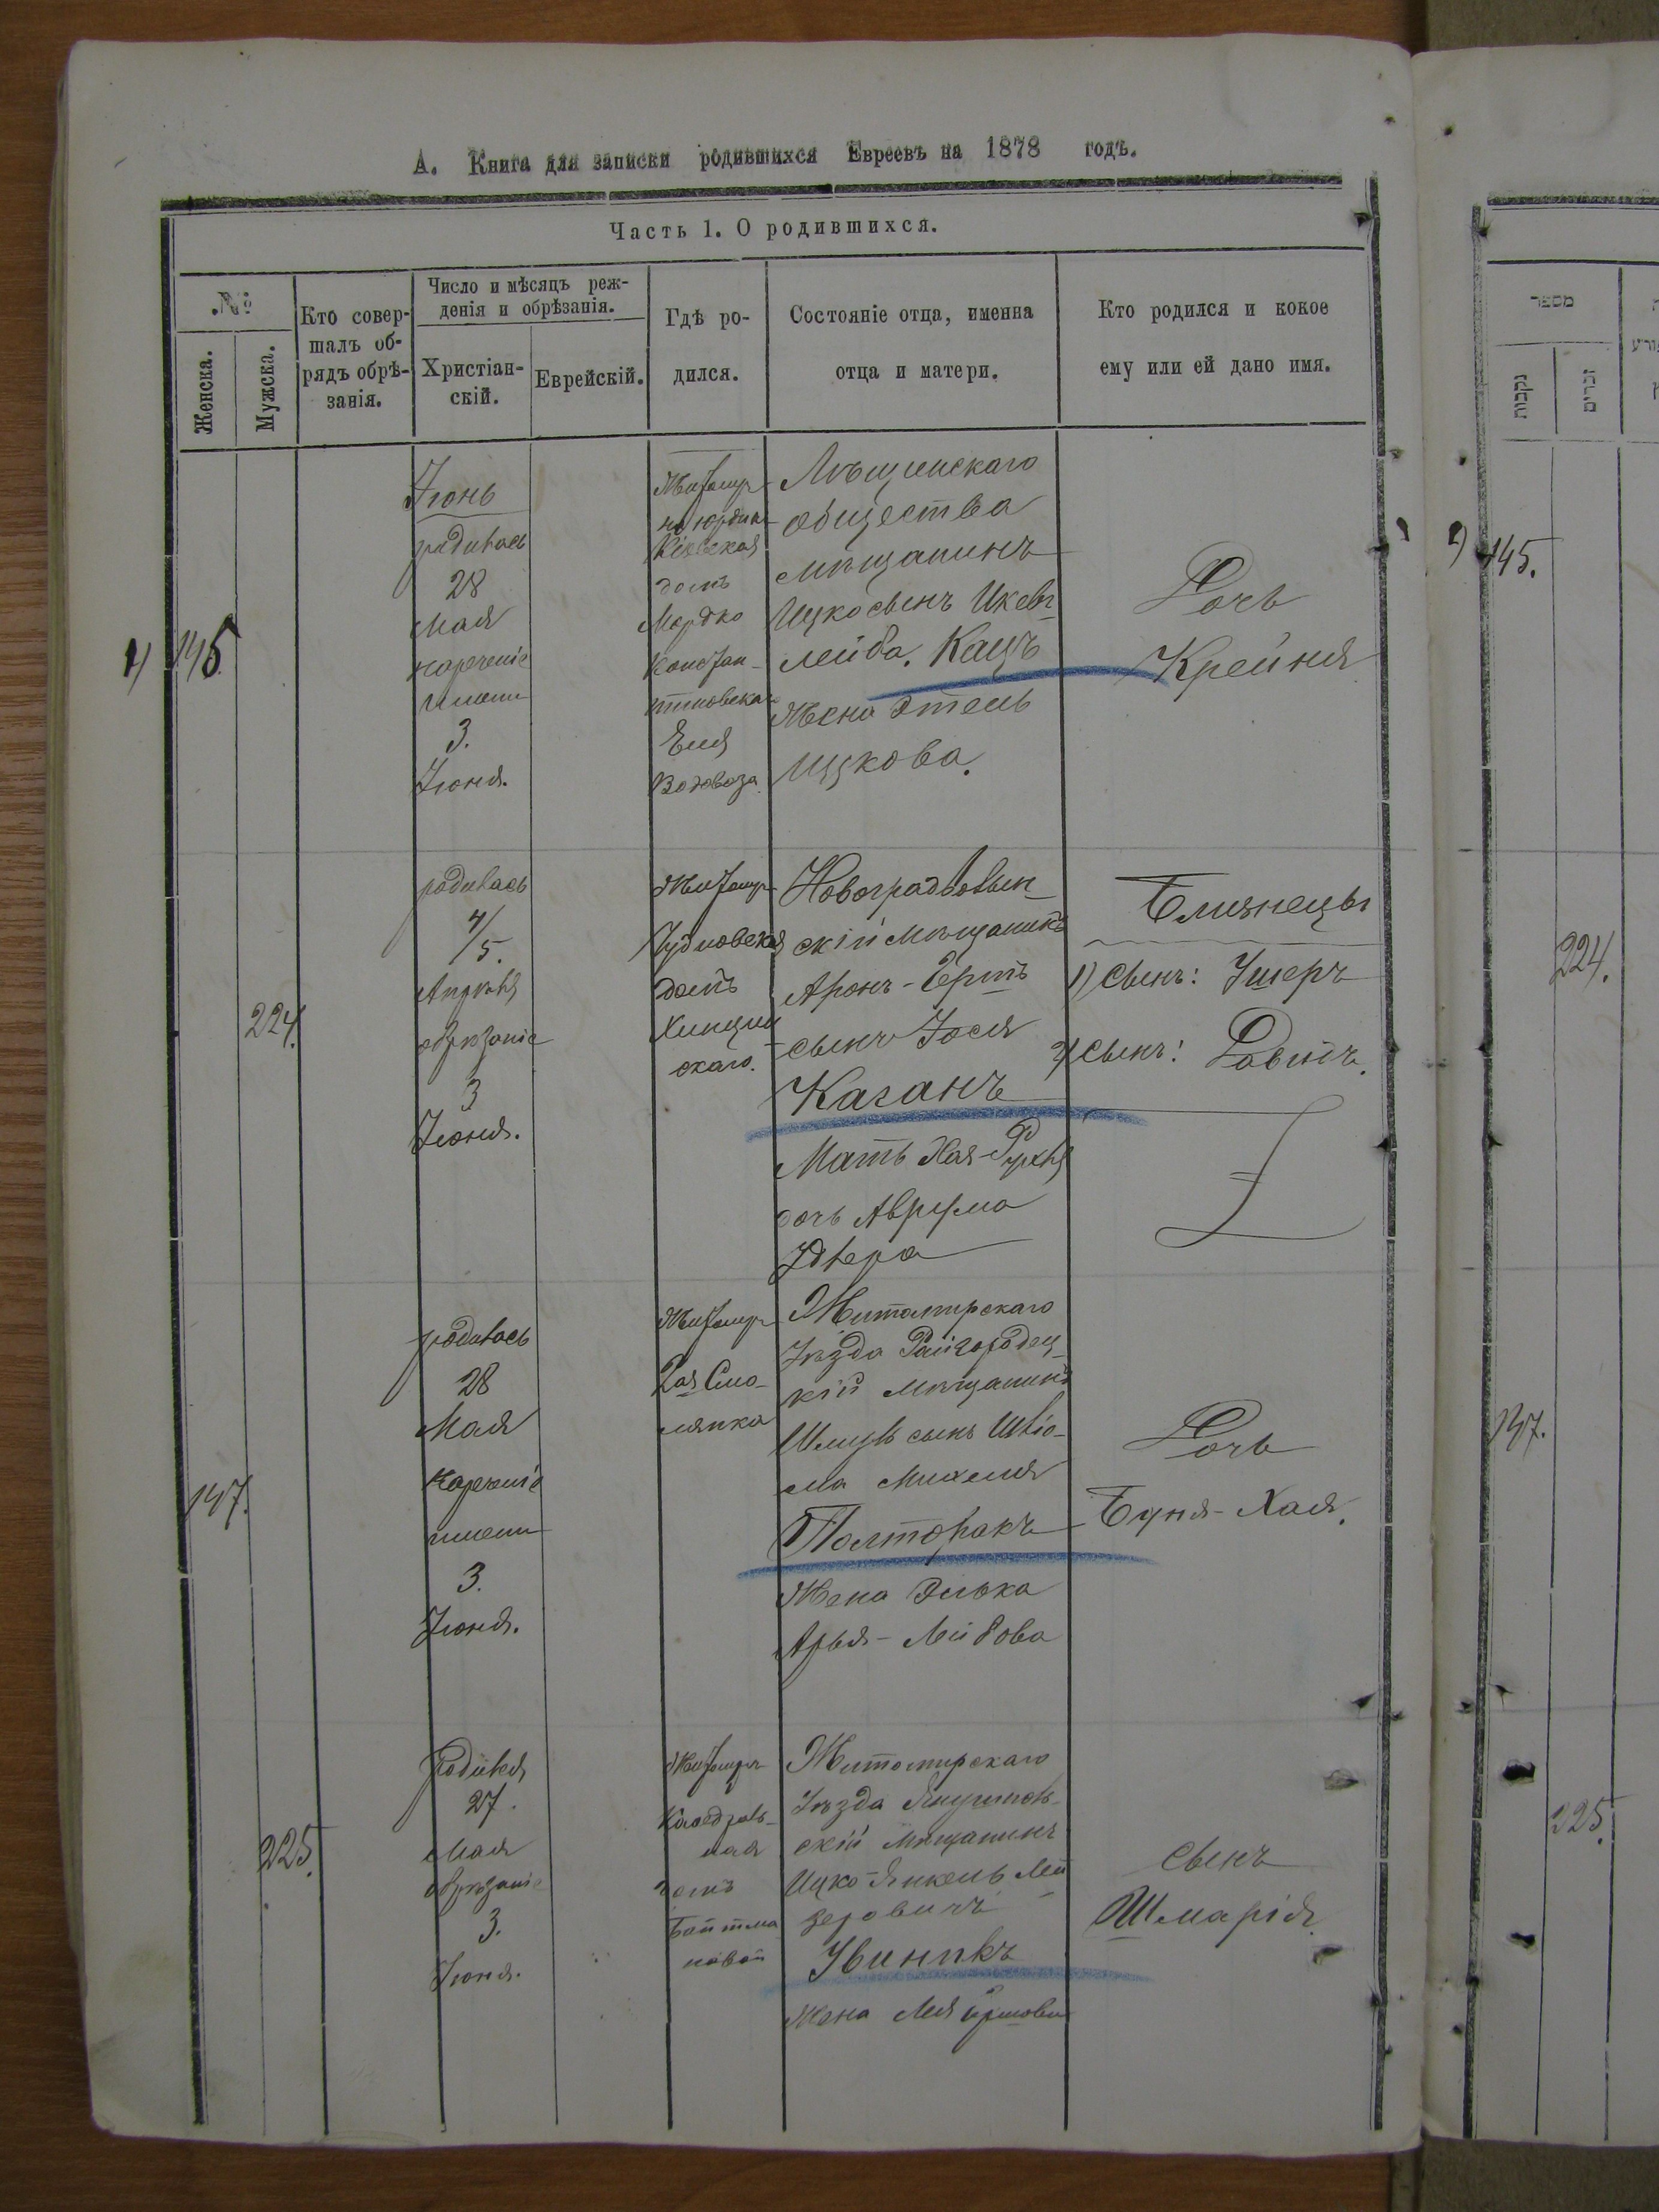 А. Книга для записки родившихся Евреевъ на 1878 годъ.
Часть 1. О родившихся.
№
Женска.
Мужска.
Кто совер-
шалъ об-
рядъ обрѣ-
занія.
Число и мѣсяцъ реж-
денія и обрѣзанія.
Христіан-
скій.
Еврейскій.
Гдѣ ро-
дился.
Состояніе отца, именна
отца и матери.
Кто родился и кокое
ему или ей дано имя.
145
Іюнь
родилась
28
мая
нареченіе
имени
3.
Іюня.
Житомир
Кіевская
домъ
Мордко
Констан-
тиновскаго
Водовоза
общества
мѣщанинъ
Ицко сынъ
лейба. Кацъ
Жена Этель
Ицкова.
Дочь
Крейня
224.
родилась
4/5.
Апрѣля
обрѣзаніе
3
Іюня.
Житомир
Чудновская
домъ
скаго.
Новоградволын-
скій мѣщанинъ
Аронъ-Герть
сынъ Іося
Каганъ
Мать Хая-Рухля
дочь Аврума
Близнецы
1) сынъ: Ушеръ
2) сынъ: Давидъ.
147.
родилась
28
Мая
нареченіе
имени
3.
Іюня.
Житомир
2ая Смо-
лянка
Житомирскаго
Уѣзда Райгородец-
кій мѣщанинъ
сынъ
ма Михеля
Полторакъ
Жена Элька
Арья-Лейбова
Дочь
Буня-Хая.
225.
Родился
27.
мая
обрѣзаніе
3.
Іюня.
Житомиръ
Каѳедраль-
ная
домъ
новой
Житомирскаго
Уѣзда Янушполь-
скій мѣщанинъ
Ицко-Янкель Лей
зеровичъ
Жена Лея
сынъ
Шмарія
מספר
נקבות
זכרים
145.
224.
147.
225.